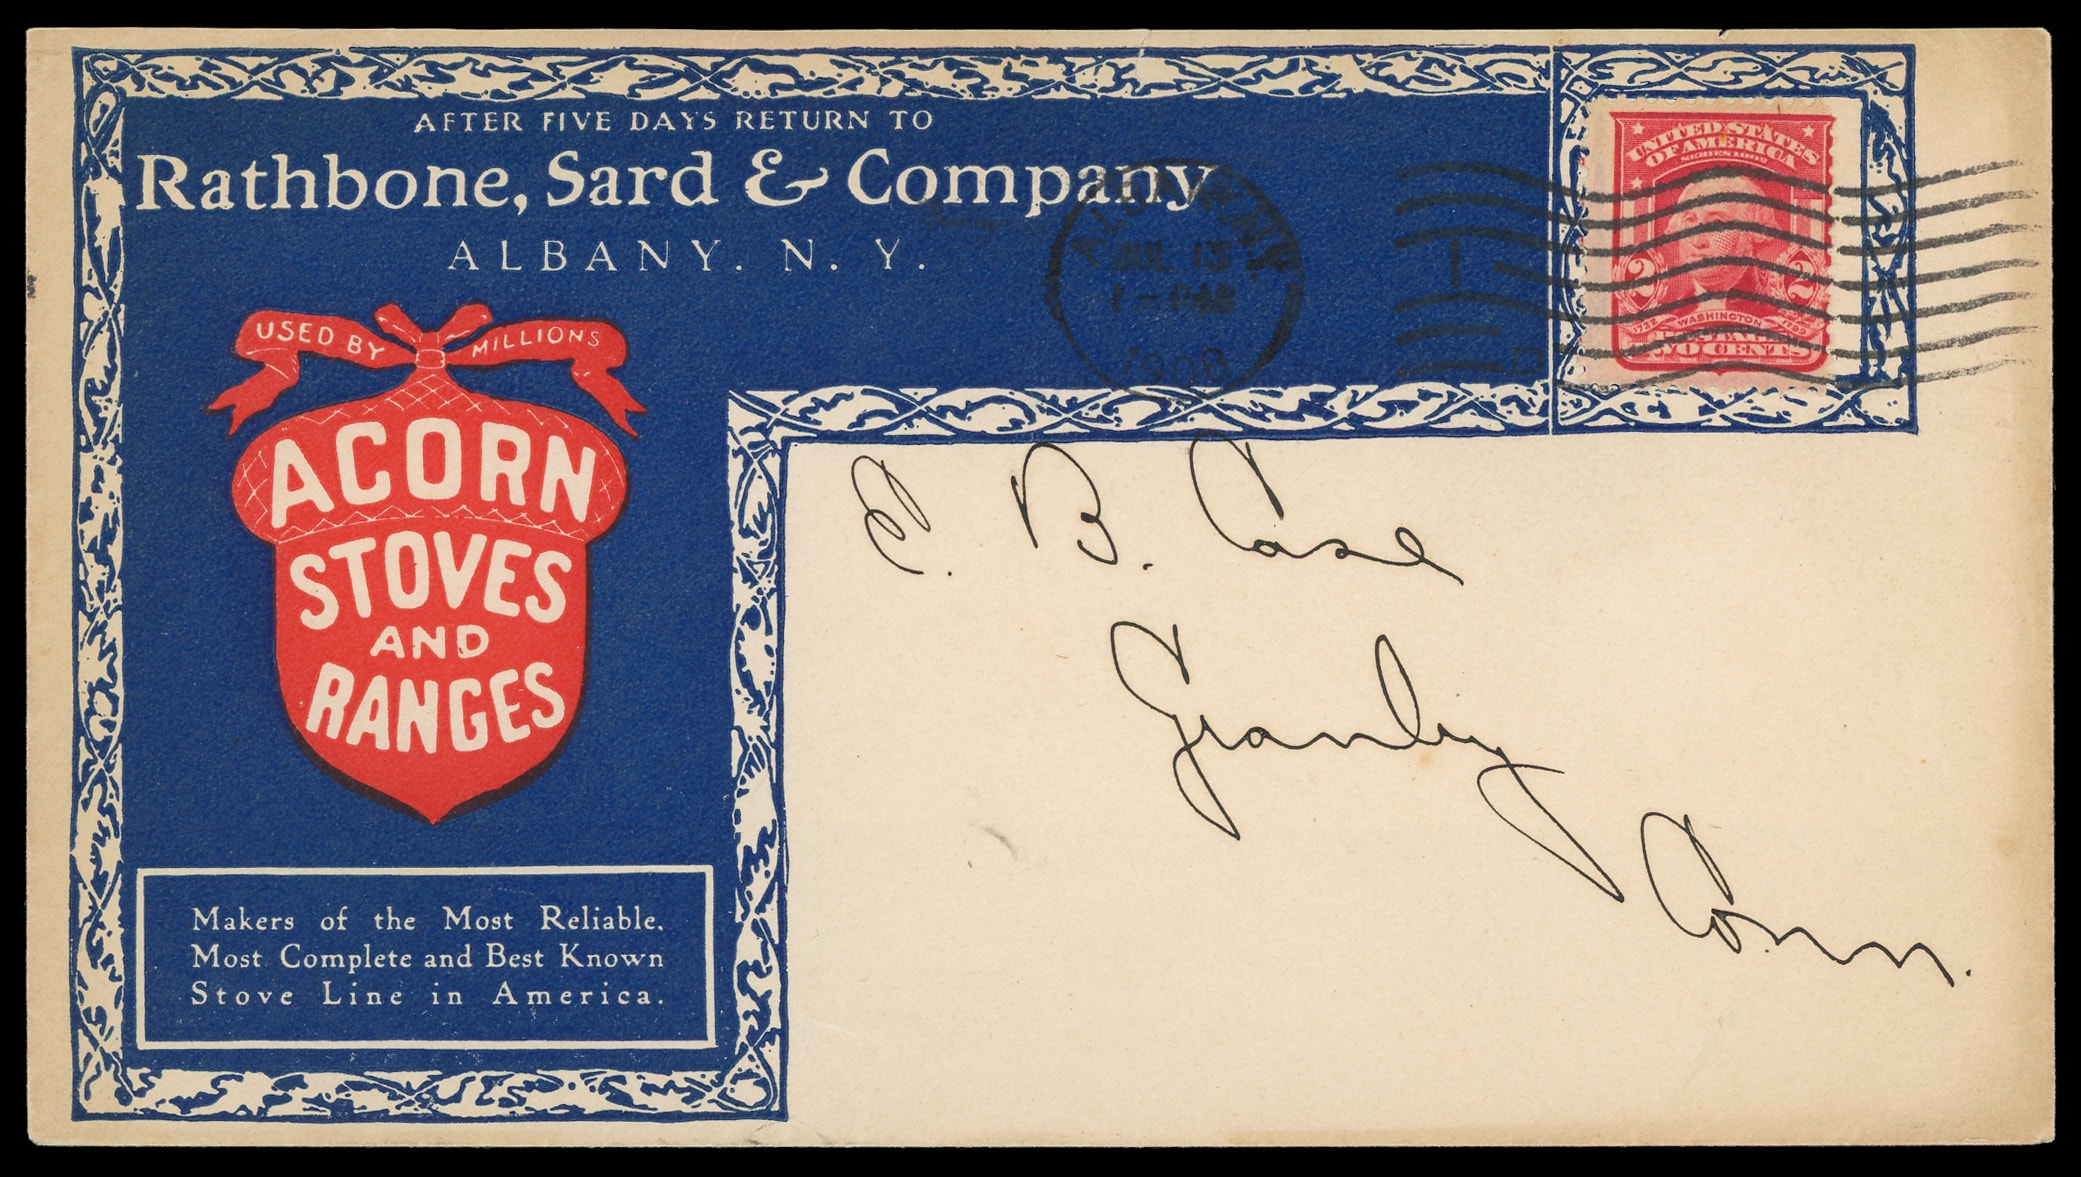 AFTER FIVE DAYS RETURN TO
Rathbone, Sard & Company
ALBANY. N. Y.
USED BY MILLIONS
ACORN
STOVES
AND
RANGES
Makers of the Most Reliable.
Most Complete and Best Known
Stove Line in America.
ALBANY, N.Y.
JUL 13
1908
UNITED STATES
OF AMERICA
SERIES 1902
2 2
1732 WASHINGTON 1799
TWO CENTS
E. B. Case
Granby
Conn.